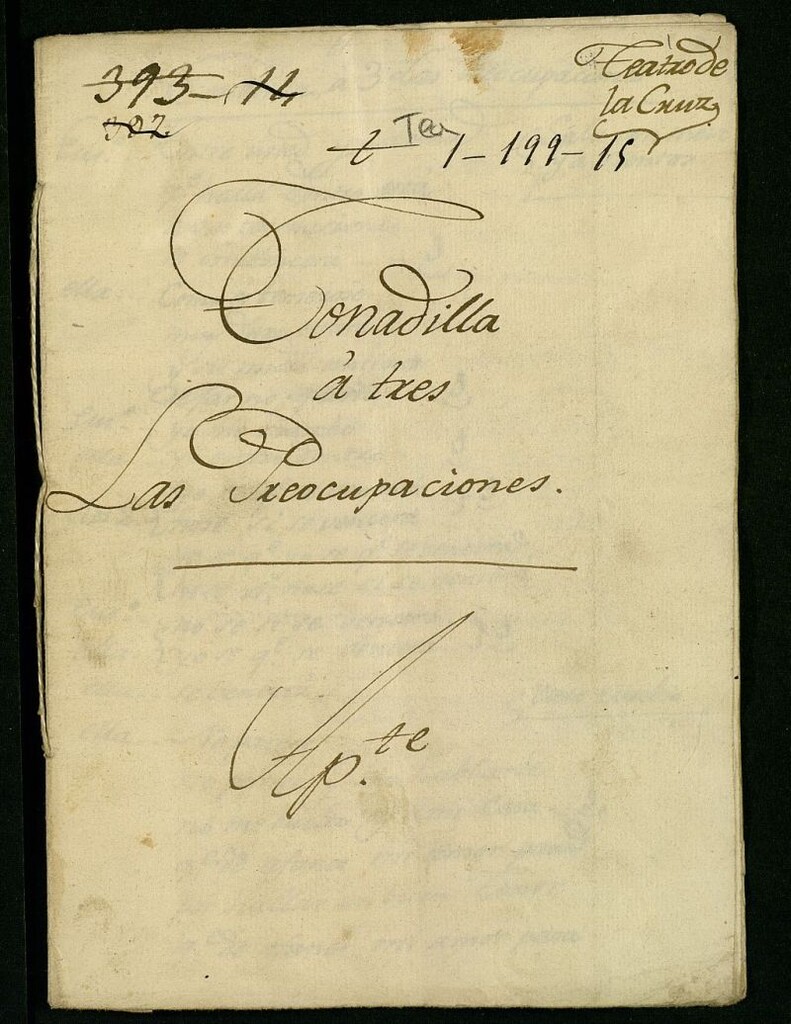 393-14
302
Teatro de
la Cruz
t Tea 1-199-15
Tonadilla
á tres
Las Preocupaciones.
Ap.te